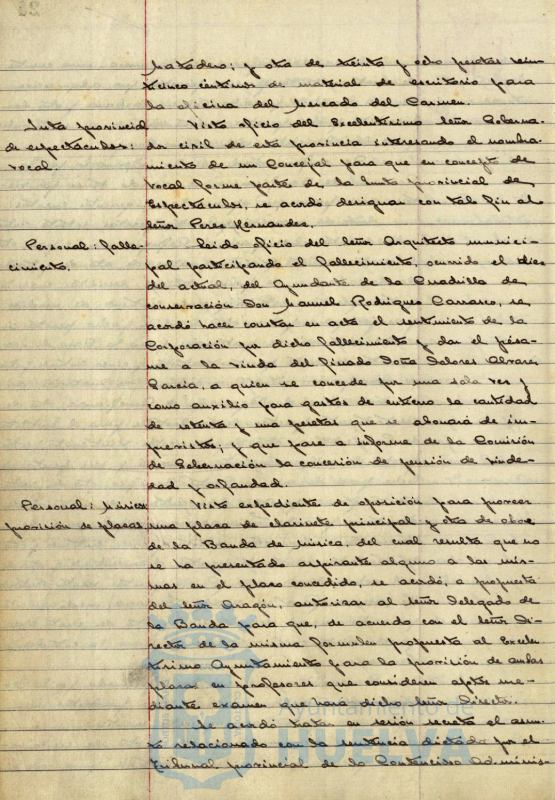 Matadero; y otra de treinta y ocho pesetas vein-
ticinco céntimos de material de escritorio para
la oficina del Mercado del Carmen.
Junta provincial
de espectáculos:
vocal.
Visto oficio del Excelentísimo Señor Goberna-
dor civil de esta provincia interesando el nombra-
miento de un Concejal para que en concepto de
vocal forme parte de la Junta provincial de
Espectáculos, se acordó designar con tal fin al
Señor Perez Hernandez.
Personal: falle-
cimiento.
Leido oficio del Señor Arquitecto munici-
pal participando el fallecimiento, ocurrido el dies
del actual, del Ayudante de la Cuadrilla de
conservación Don Manuel Rodriguez Carrasco, se
acordó hacer constar en acta el sentimiento de la
Corporación por dicho fallecimiento y dar el pésa-
me a la viuda del finado Doña Dolores Alvarez
Garcia, a quien se concede por una sola vez y
como auxilio para gastos de entierro la cantidad
de setenta y una pesetas que se abonará de im-
previstos; y que pase a informe de la Comisión
de Gobernación la concesión de pensión de viude-
dad y orfandad.
Personal: Música
provisión de plazas.
Visto expediente de oposición para proveer
una plaza de clarinete principal y otra de oboe
de la Banda de música, del cual resulta que no
se ha presentado aspirante alguno a las mis-
mas en el plazo concedido, se acordó, a propuesta
del Señor Aragón, autorizar al Señor Delegado de
la Banda para que, de acuerdo con el Señor Di-
rector de la misma formulen propuesta al Excelen-
tísimo Ayuntamiento para la provisión de ambas
plazas en profesores que consideren aptos me-
diante examen que hará dicho Señor Director.
Se acordó tratar en sesión secreta el asun-
to relacionado con la sentencia dictada por el
Tribunal provincial de lo Contencioso Adminis-
Ayuntamiento de
HUELVA